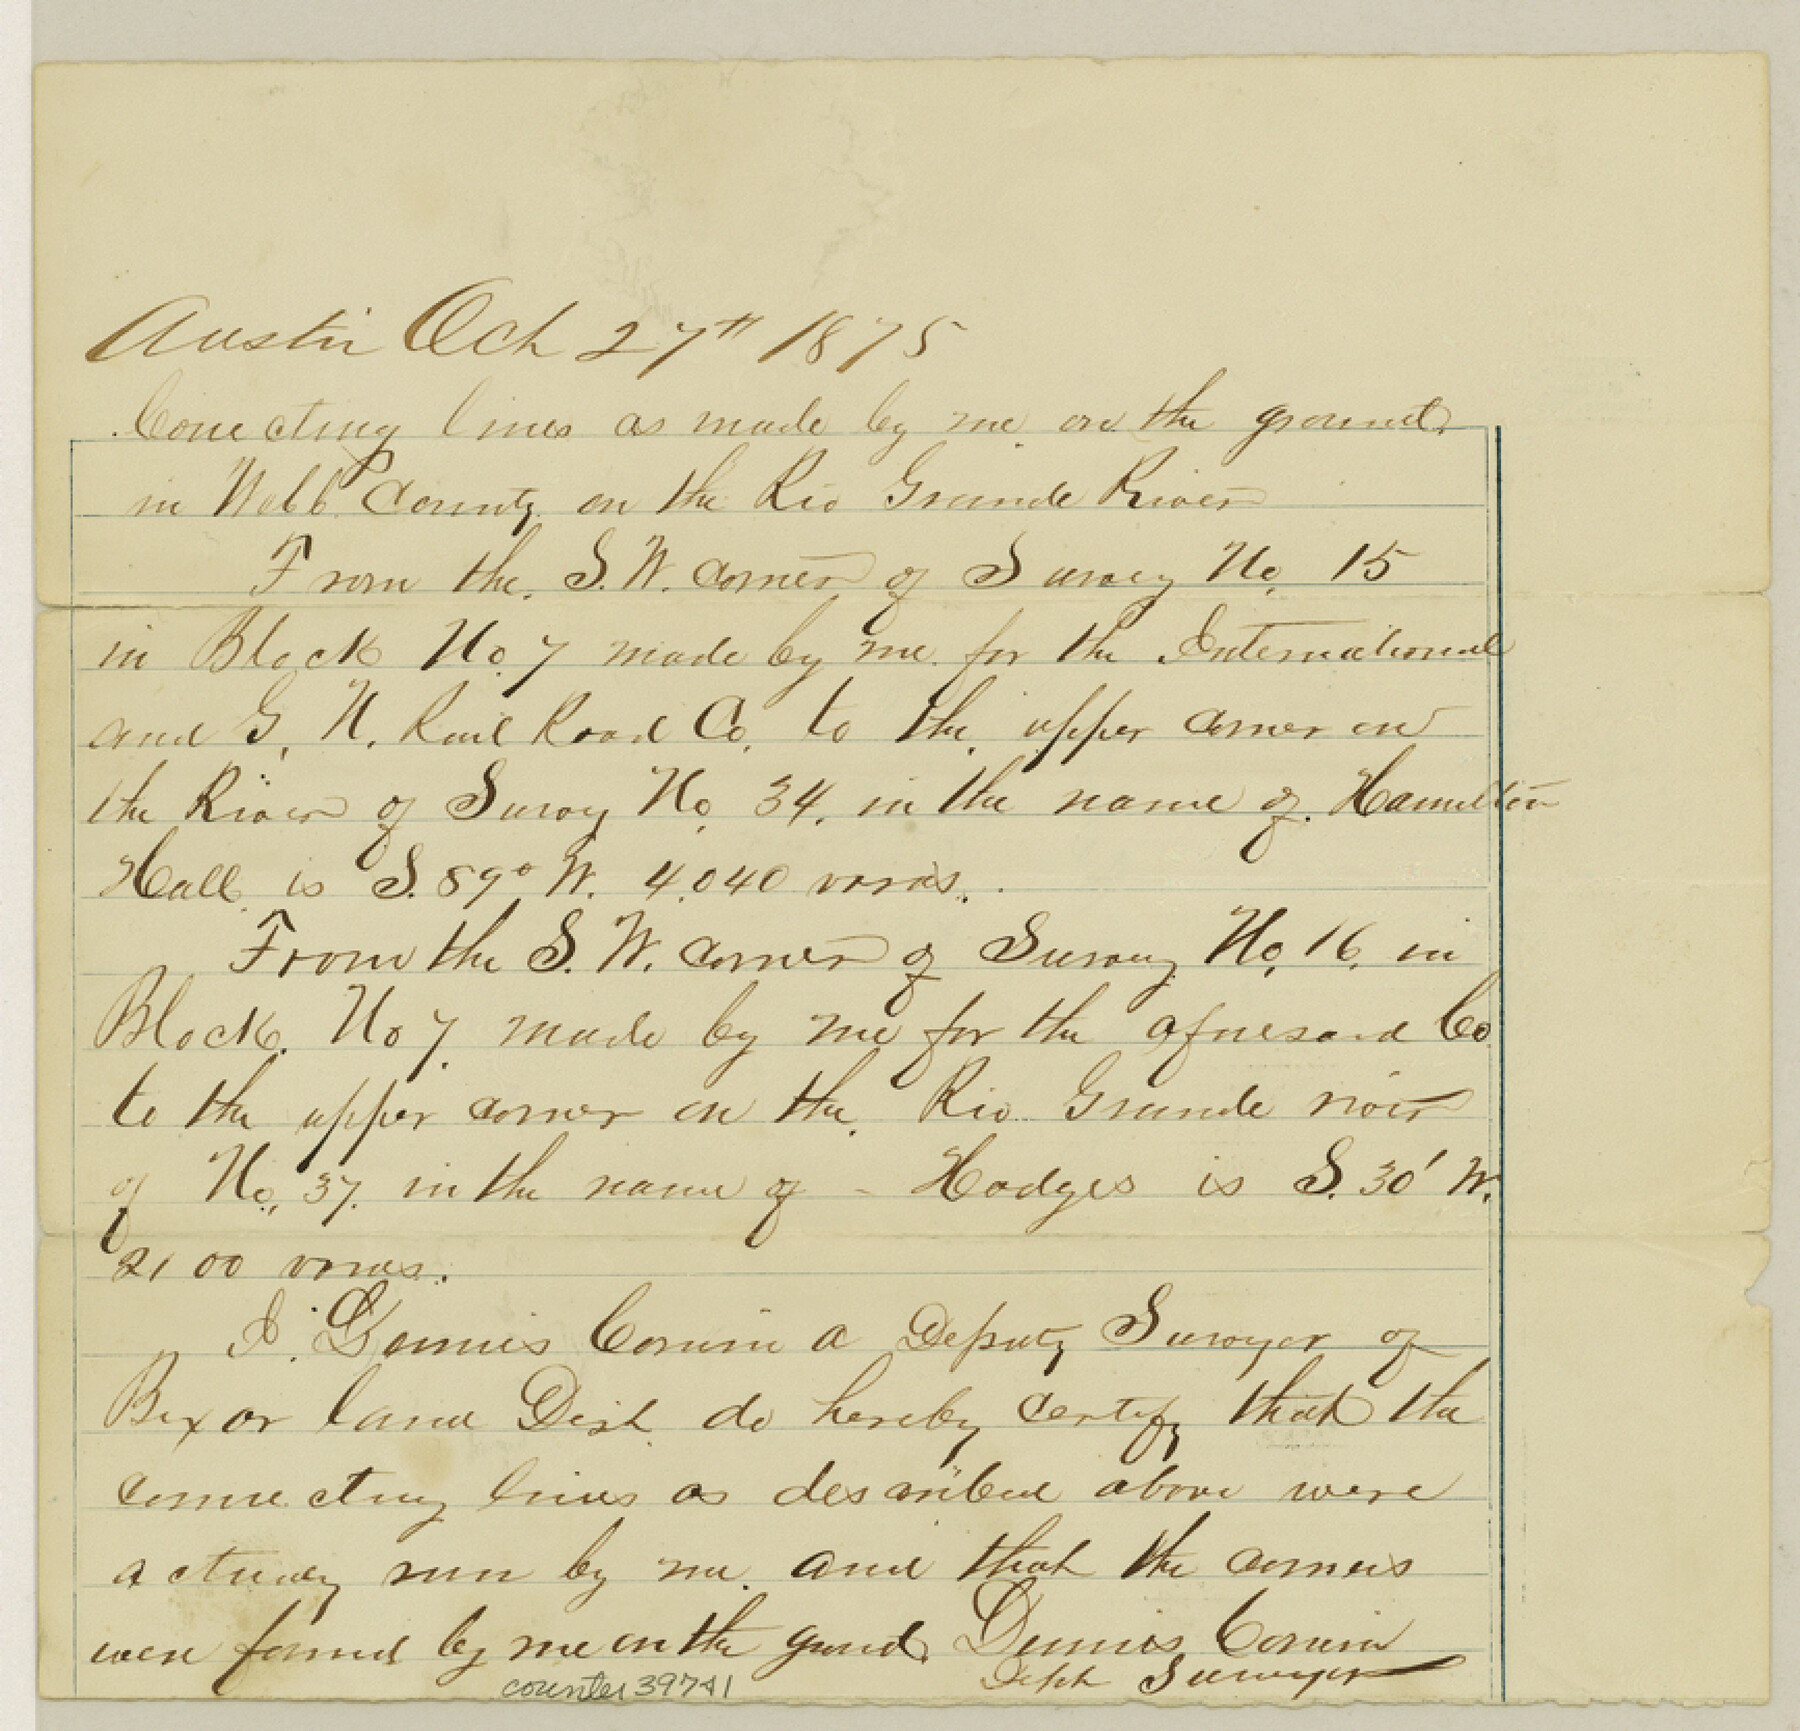 Austin Oct 27th 1875
Conecting lines as made by me on the ground
in Webb County on the Rio Grande River
From the S.W. corner of Survey No. 15
in Block No. 7 made by me for the International
and G. N. Rail Road Co. to the upper corner on
the River of Survey No. 34. in the name of Hamilton
Hall is S. 89° W. 4.040 varas.
From the S. W. corner of Survey No. 16. in
Block No 7 made by me for the aforesaid Co.
to the upper corner on the Rio Grande river
of No. 37. in the name of - Hodges is S. 30' W.
2100 varas.
I. Dennis Corwin a Deputy Surveyor of
Bexar land Dist do hereby certify that the
connecting lines as described above were
actually run by me and that the corners
were found by me on the gound Dennis Corwin
Dept Surveyor
counter 39741